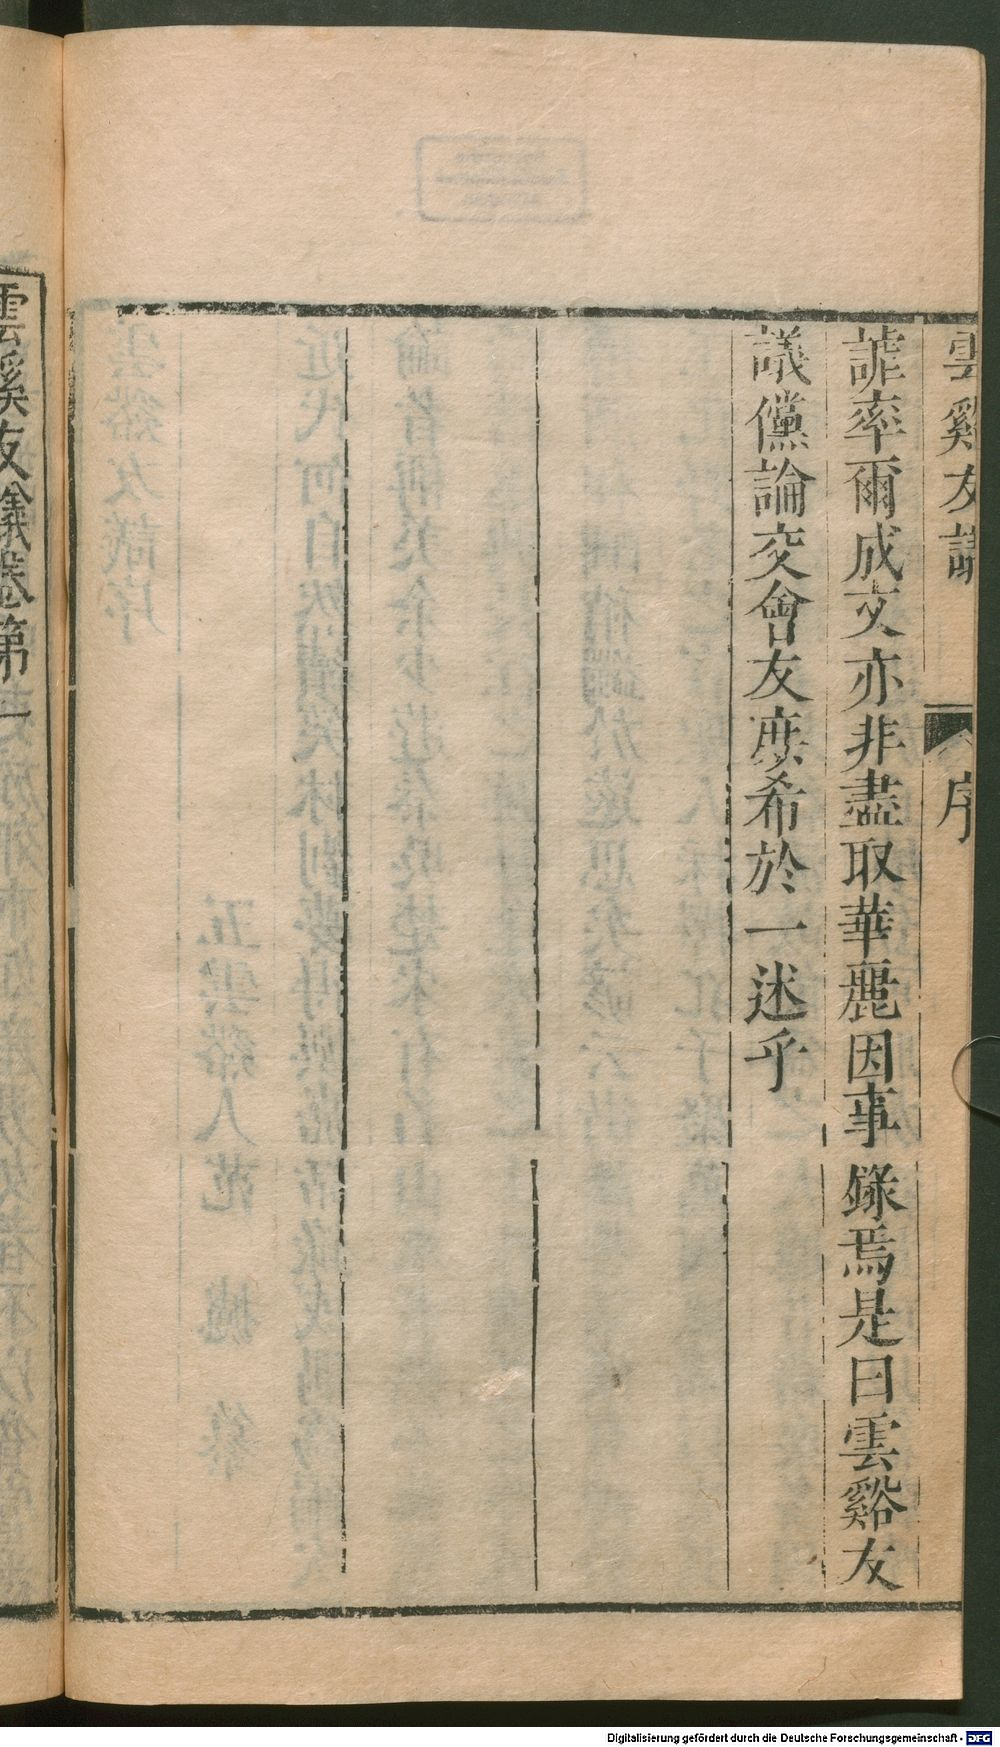 雲谿友議
序
謔率爾成文亦非盡取華麗因事錄焉是曰雲谿友
議儻論交會友庶希於一述乎
雲谿友議卷第一
Digitalisierung gefördert durch die Deutsche Forschungsgemeinschaft - DFG